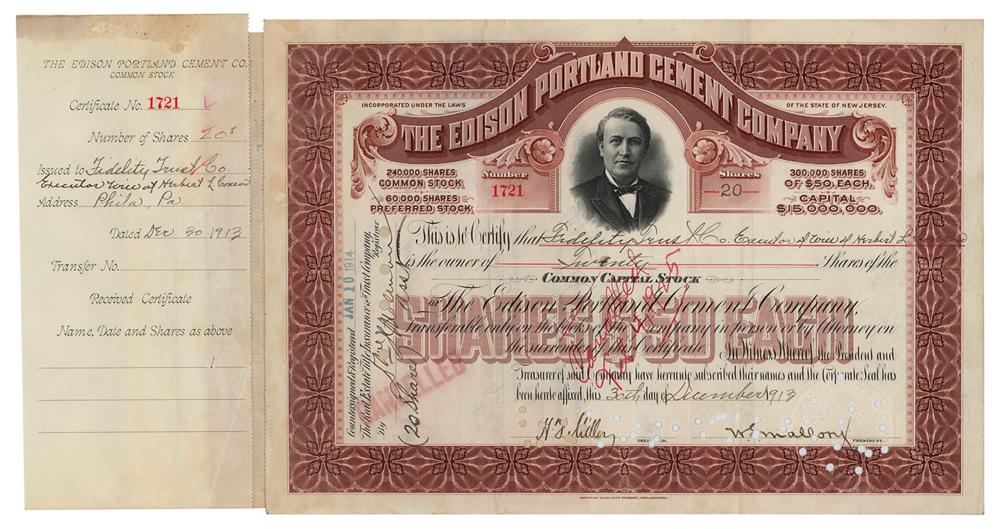 THE EDISON PORTLAND CEMENT CO.
COMMON STOCK
Certificate No. 1721
Number of Shares 20
Issued to Fidelity Trust Co.
Executor of Herbert L
Address Phila, Pa
Dated Dec 30 1913
Transfer No.
Received Certificate
Name, Date and Shares as above
THE EDISON PORTLAND CEMENT COMPANY
INCORPORATED UNDER THE LAWS
OF THE STATE OF NEW JERSEY.
240,000 SHARES
COMMON STOCK
60,000 SHARES
PREFERRED STOCK
Number
1721
Shares
20
300,000 SHARES
OF $50, EACH,
CAPITAL
$15,000,000.
This is to Certify that Fidelity Trust Co. Executor of Herbert L
is the owner of Twenty Shares of the
COMMON CAPITAL STOCK
of The Edison Portland Cement Company,
Transferable only on the Books of the Company in person or by Attorney on
the surrender of this Certificate
In Witness Whereof, the President and
Treasurer of said Company have hereunto subscribed their names and the Corporate Seal has
been hereto affixed, this 30th day of December 1913
SHARES $50 EACH
CANCELLED
Cancelled
Countersigned & Registered
JAN 10 1914
The Real Estate Title Insurance & Trust Company, Registrar
By
(20 Shares
TREASURER.
PRESIDENT.